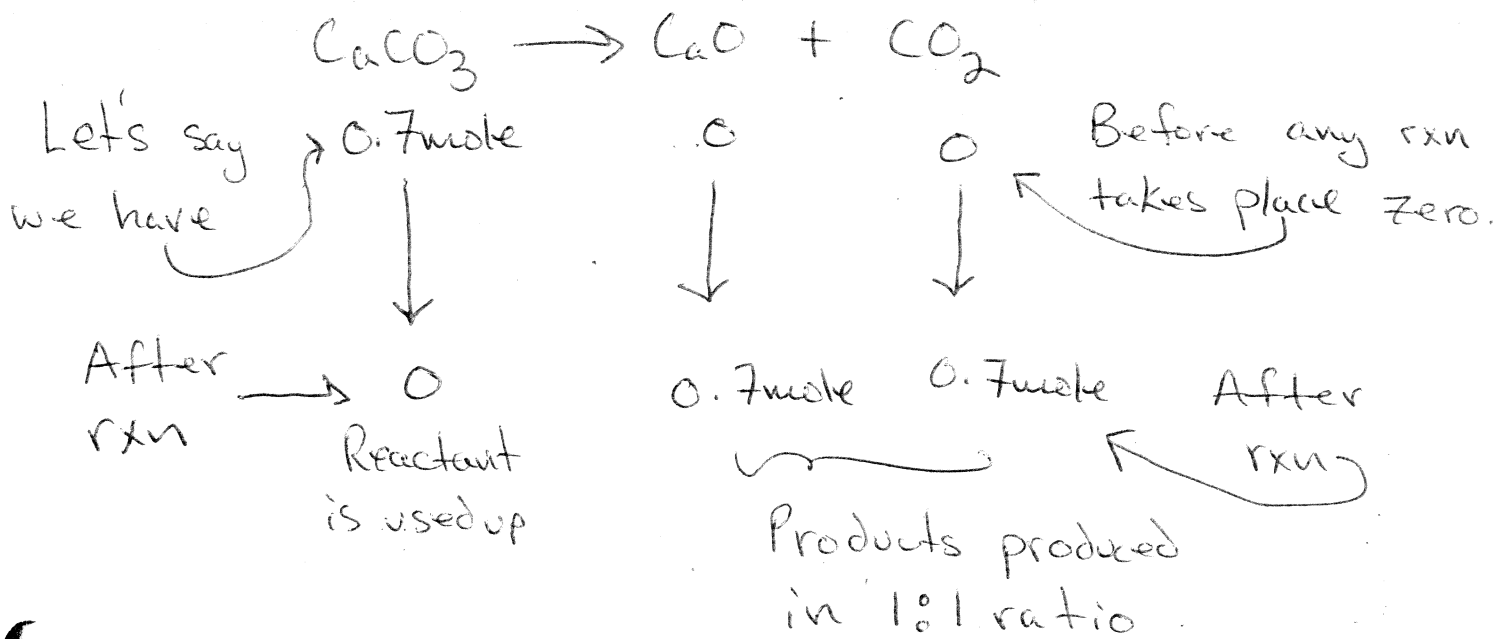 CaCO₃ → CaO + CO₂
Let's say we have
0.7mole 0 0
Before any rxn takes place zero.
After rxn
0 0.7mole 0.7mole
After rxn
Reactant
is used up
Products produced
in 1:1 ratio.